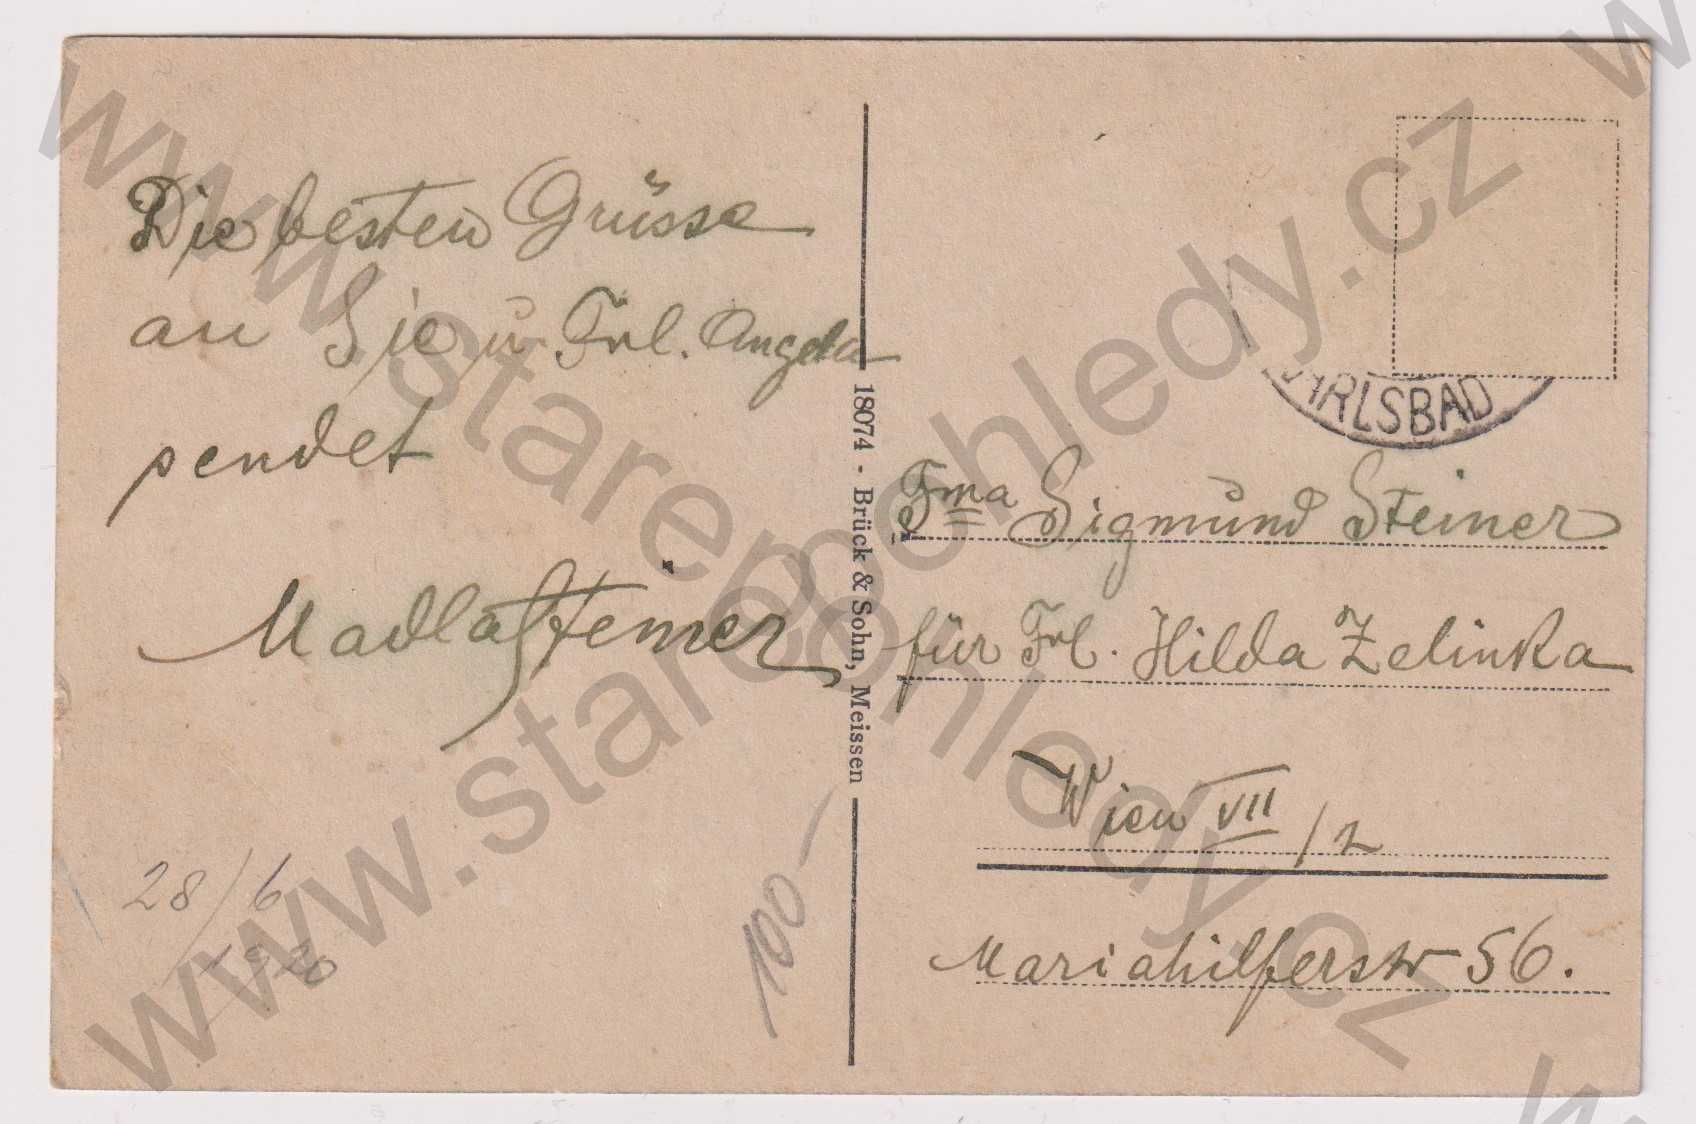 Die besten Grüsse
an Sie u. Frl. Angela
sendet
Madla Steiner
28/6
1920
100-
18074 - Brück & Sohn, Meissen
KARLSBAD
Fma Sigmund Steiner
für Frl. Hilda Zelinka
Wien VII/2
Mariahilferstr 56.
www.starepohledy.cz
www.starepohledy.cz